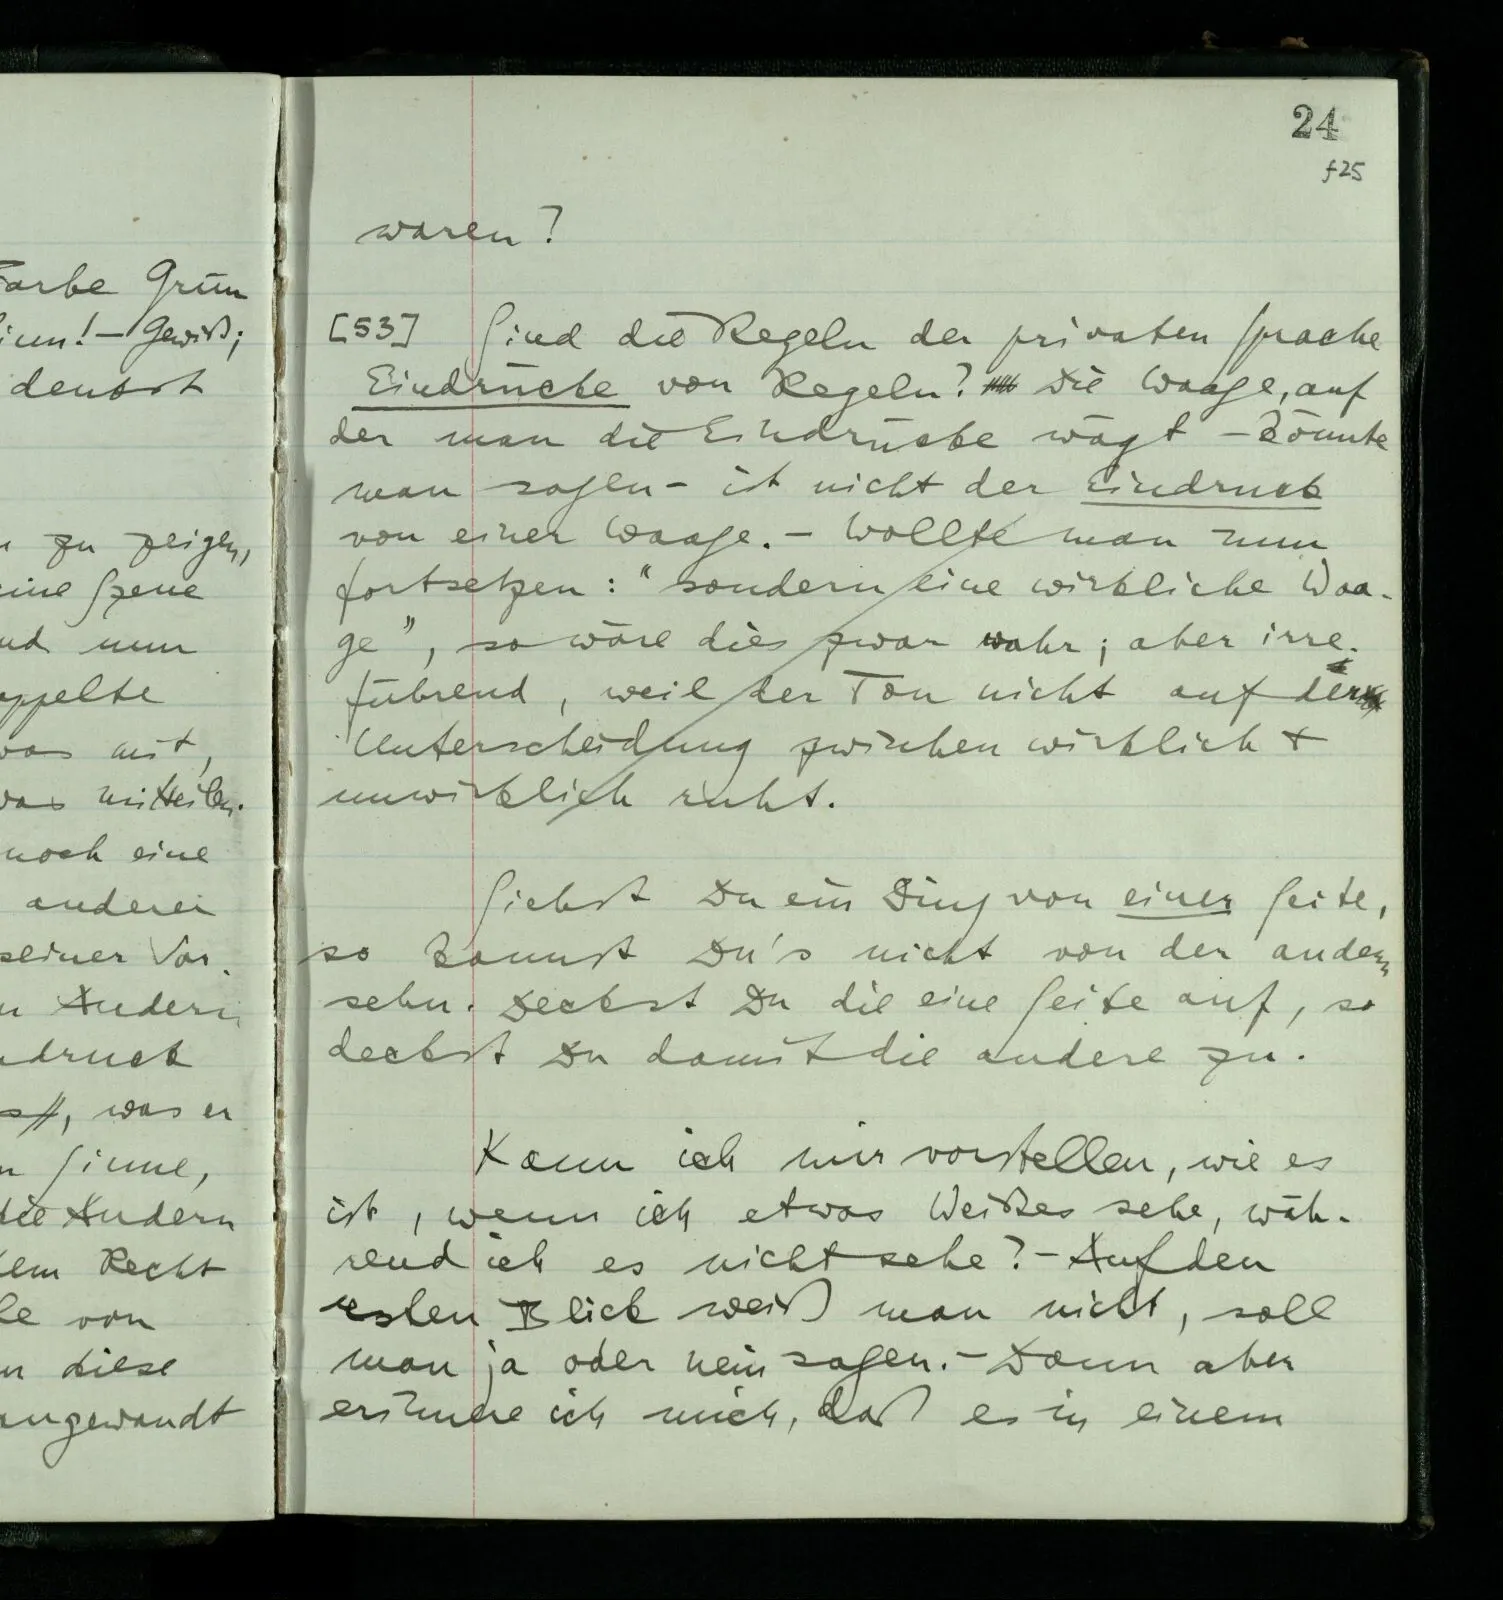 Farbe Grün
Sinn! – Gewiß;
denkst
zu zeigen,
eine Szene
und nun
doppelte
was mit,
was mitteilen.
noch eine
anderer
seiner Vor-
Andern
was er
Sinne,
die Andern
dem Recht
von
diese
angewandt
24
f25
waren?
[53] Sind die Regeln der privaten Sprache
Eindrücke von Regeln? Die Waage, auf
der man die Eindrücke wägt – könnte
man sagen – ist nicht der Eindruck
von einer Waage. – Wollte man nun
fortsetzen: "sondern eine wirkliche Waa-
ge", so wäre dies zwar wahr; aber irre-
führend, weil der Ton nicht auf der
Unterscheidung zwischen wirklich +
unwirklich ruht.
Siehst Du ein Ding von einer Seite,
so kannst Du's nicht von der andern
sehn. Deckst Du die eine Seite auf, so
deckst Du damit die andere zu.
Kann ich mir vorstellen, wie es
ist, wenn ich etwas Weißes sehe, wäh-
rend ich es nicht sehe? – Auf den
ersten Blick weiß man nicht, soll
man ja oder nein sagen. – Dann aber
erinnere ich mich, daß es in einem